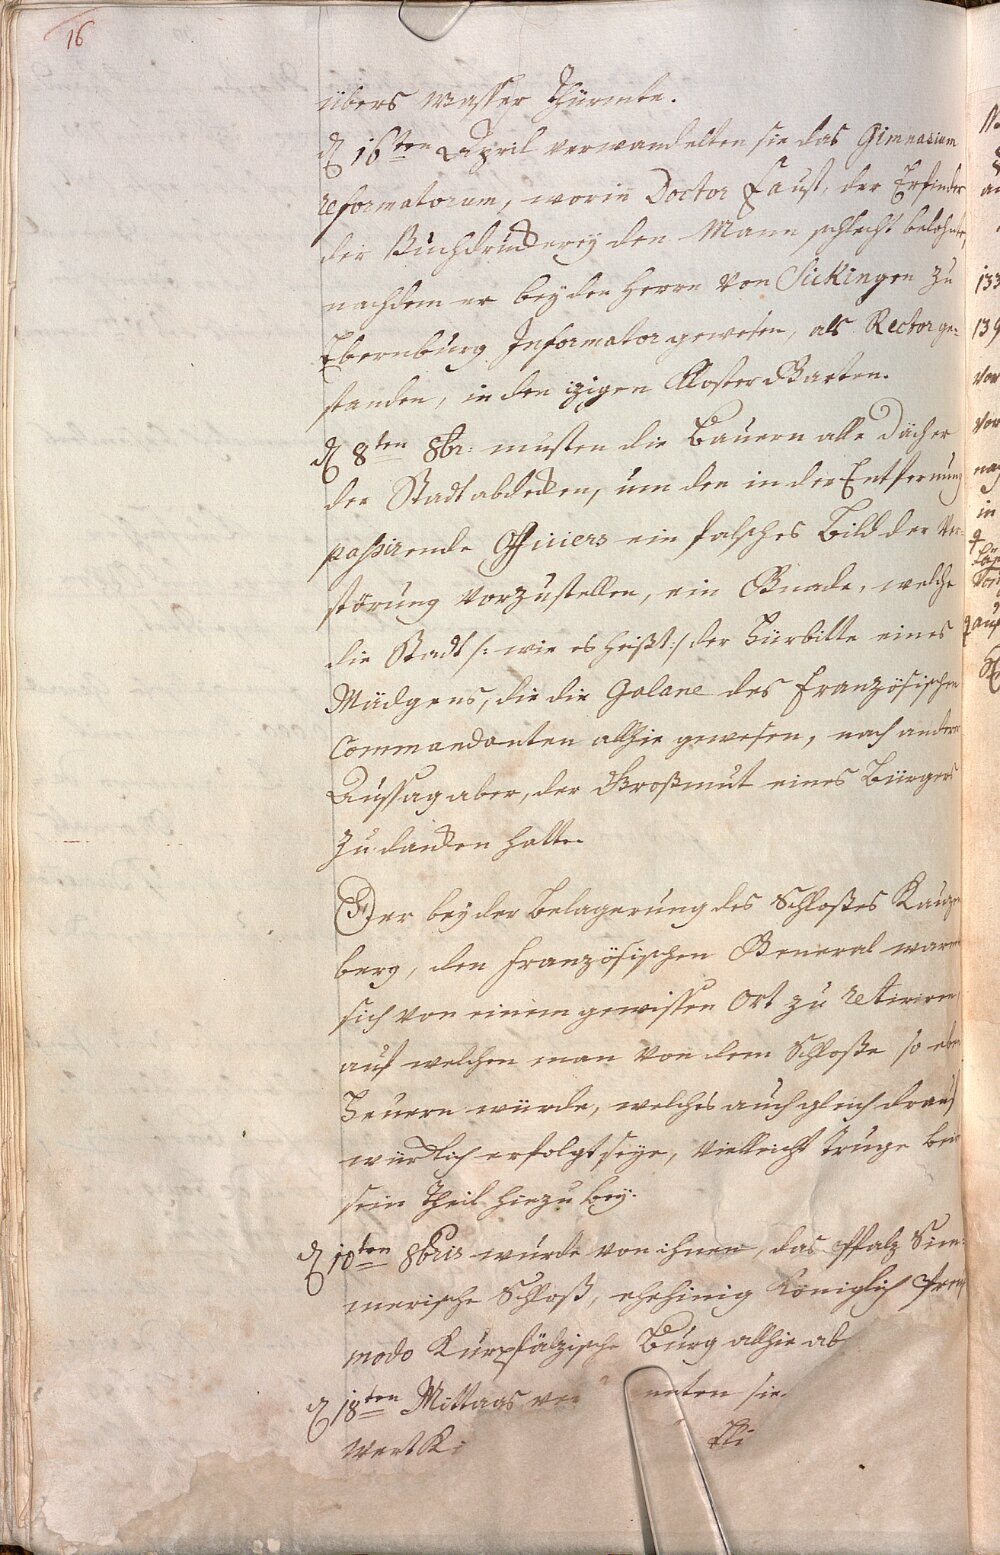 16
übers Wasser Thürmte.
d. 16ten April verwandelten sie das Gimnasium
reformatorum, worin Doctor Faust, der Erfinder
der Buchdruckerey den Mann schlecht belohnte,
nachdem er bey den Herrn von Sickingen zu
Ebernburg Informator gewesen, als Rector ge-
standen, in den izigen Kloster Garten.
d. 8ten 8br: musten die Bauern alle Dächer
der Stadt abdecken, um den in der Entfernung
paßirende Officiers ein falsches Bild der Ver-
störung vorzustellen, ein Gnade, welche
die Stadt /: wie es heißt :/ der Fürbitte eines
Mädgens, die die Galane des französischen
Commandanten allhie gewesen, nach andern
Aussag aber, der Großmut eines Bürgers
zu dancken hatte.
Der bey der Belagerung des Schloßes Kauzen
berg, den französischen General warne
sich von einem gewissen Ort zu retiriren
auf welchen man von dem Schloße so eben
Feuern würde, welches auch gleich drauf
würcklich erfolgt seye, vielleicht truge
sein Theil hiezu bey.
d. 10ten 8bris wurde von ihnen, das Pfalz Sim-
merische Schloß, ehehinig Königlich
modo Kurpfälzische Burg allhie ab
d. 18ten Mittags sie